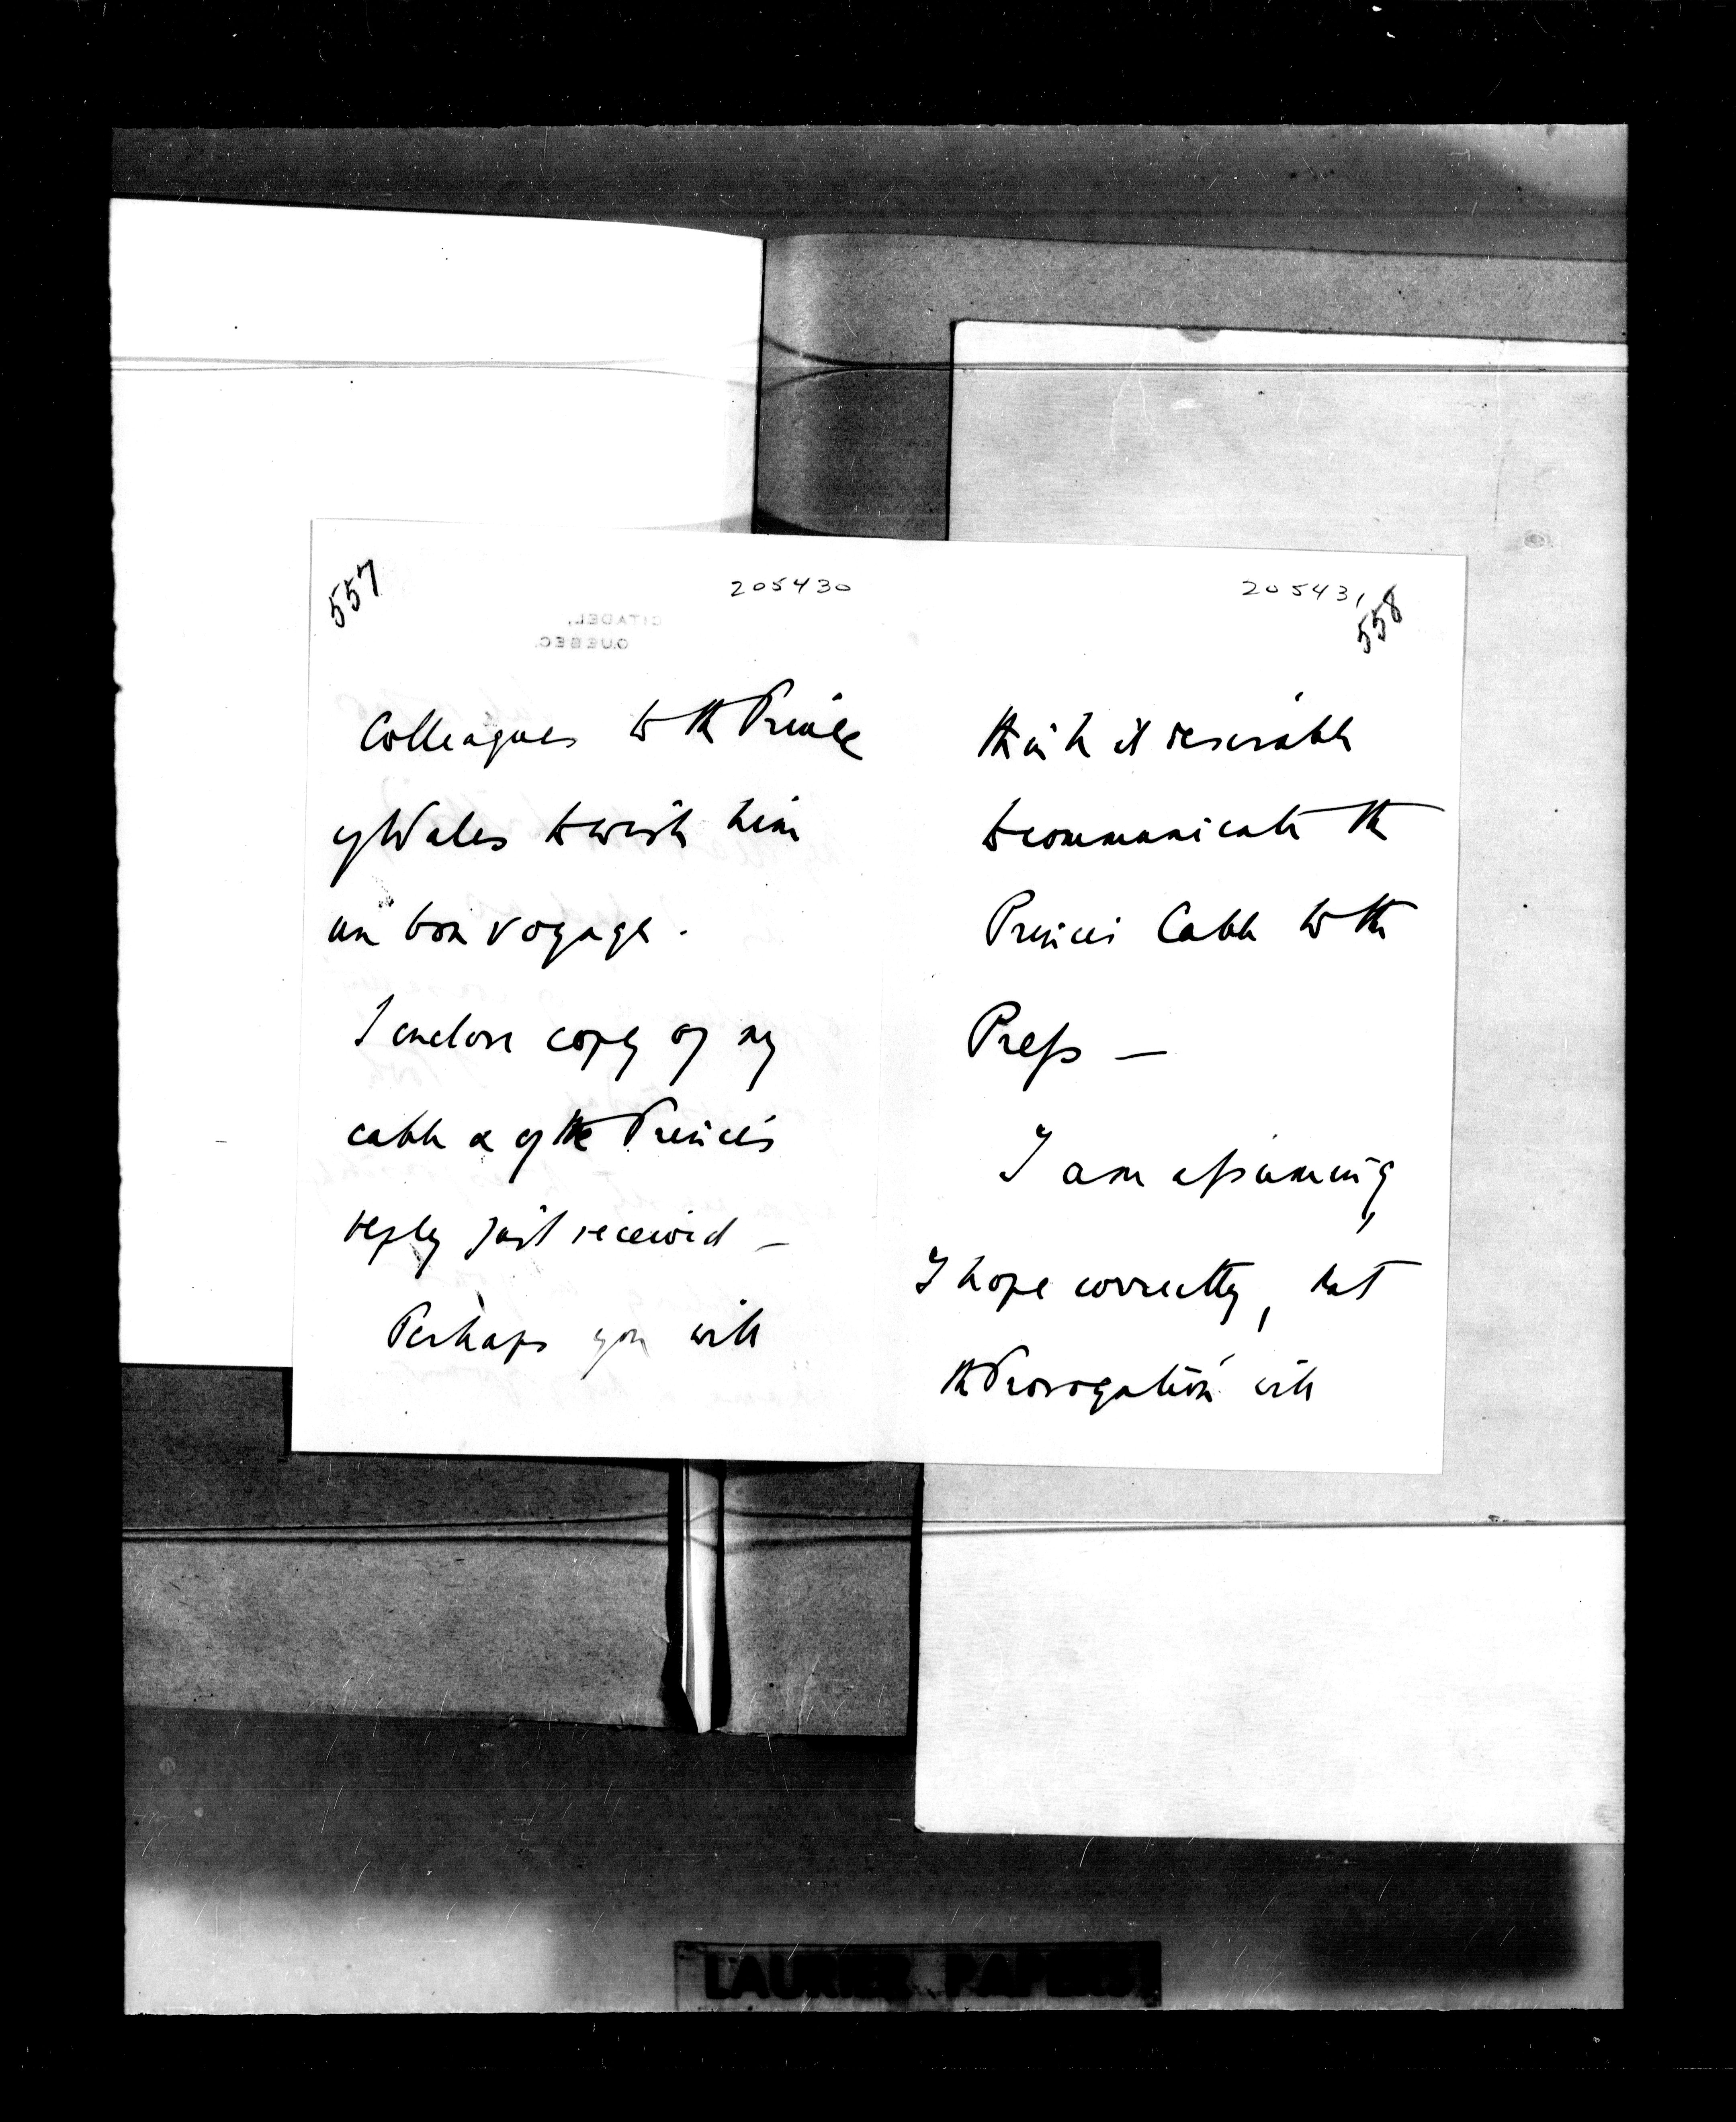 557
205430
CITADEL,
QUEBEC.
Colleagues to the Prince
of Wales to wish him
un bon voyage.
I enclose copy of my
cable & of the Prince's
reply just received –
Perhaps you will
205431
558
think it desirable
to communicate the
Princes Cable to the
Press –
I am assuming,
I hope correctly, that
the Prorogation will
LAURIER PAPERS